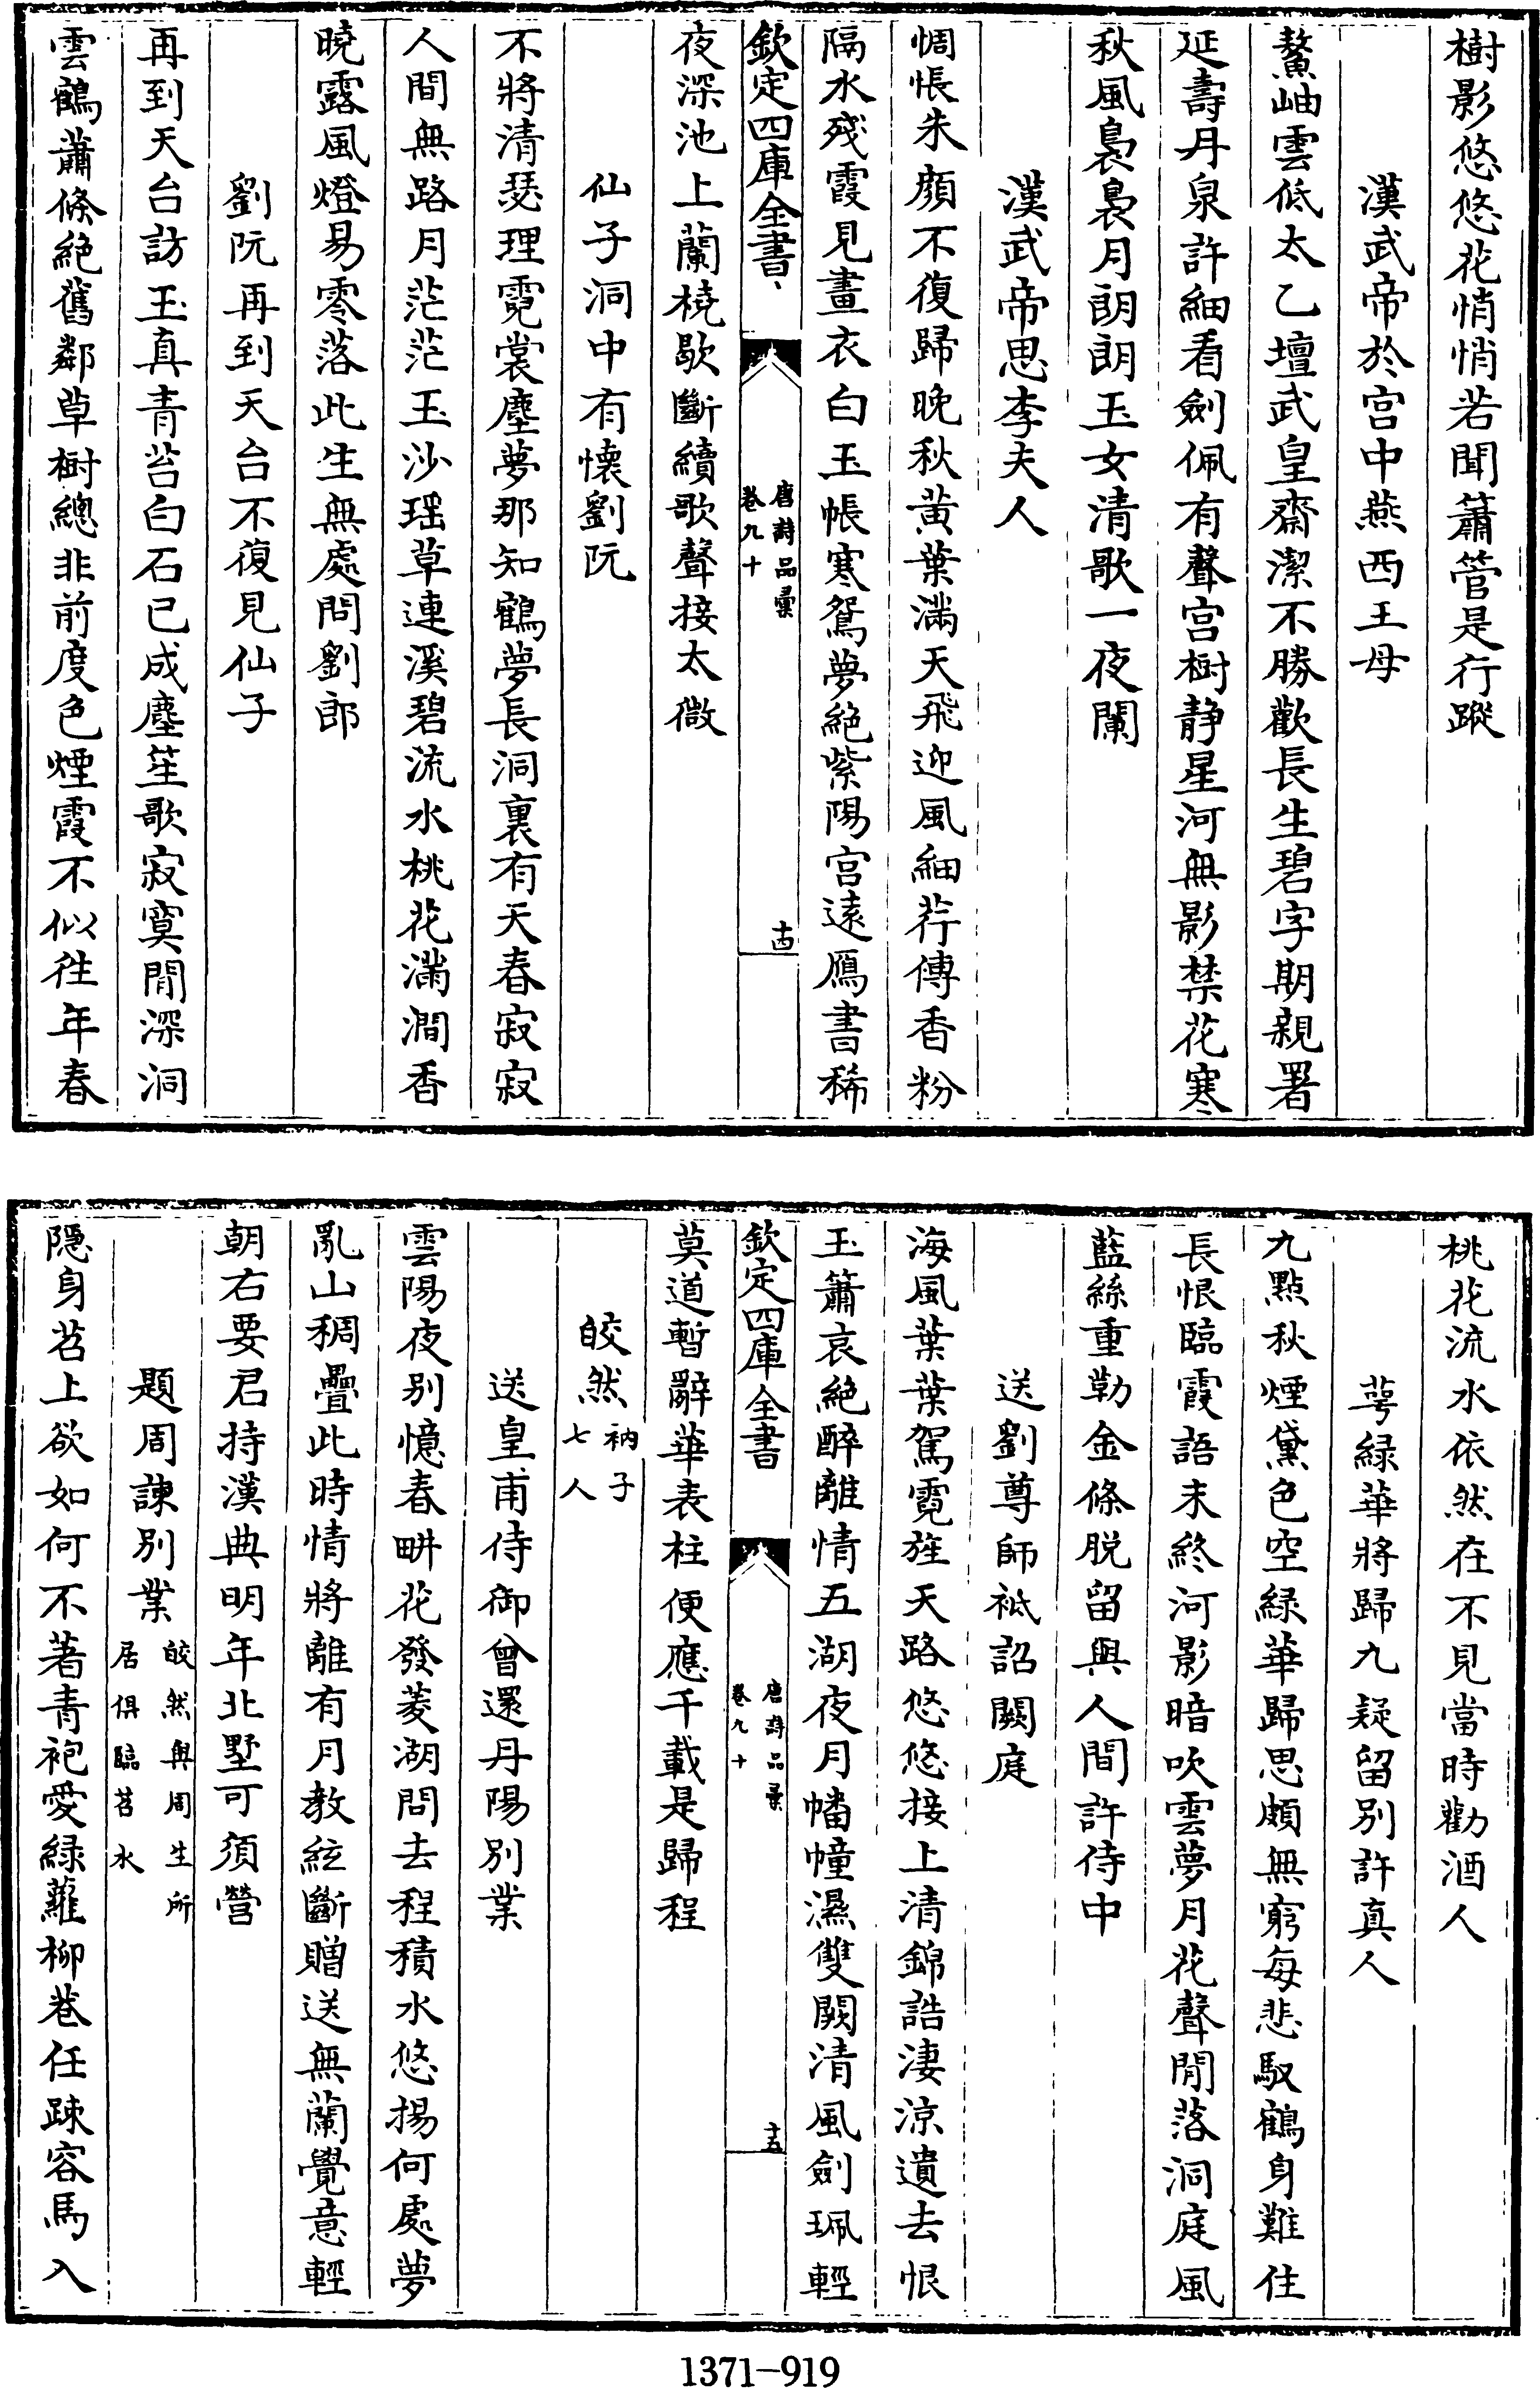 樹影悠悠花悄悄若聞簫管是行蹤
漢武帝於宫中燕西王母
鰲岫雲低太乙壇武皇齋潔不勝歡長生碧字期親署
延壽丹泉許細看劍佩有聲宫樹静星河無影禁花寒
秋風裊裊月朗朗玉女清歌一夜闌
漢武帝思李夫人
惆悵朱顔不復歸晚秋黄葉滿天飛迎風細荇傳香粉
隔水殘霞見畫衣白玉帳寒鴛夢絶紫陽宫逺鴈書稀
欽定四庫全書
唐詩品彙
卷九十
十四
夜深池上蘭橈歇斷續歌聲接太微
仙子洞中有懷劉阮
不將清瑟理霓裳塵夢那知鶴夢長洞裏有天春寂寂
人間無路月茫茫玉沙瑶草連溪碧流水桃花滿澗香
曉露風燈易零落此生無處問劉郎
劉阮再到天台不復見仙子
再到天台訪玉真青苔白石已成塵笙歌寂寞閒深洞
雲鶴蕭條絶舊鄰草樹總非前度色煙霞不似往年春
桃花流水依然在不見當時勸酒人
萼緑華將歸九疑留别許真人
九點秋煙黛色空緑華歸思頗無窮每悲馭鶴身難住
長恨臨霞語未終河影暗吹雲夢月花聲閒落洞庭風
藍絲重勒金條脱留與人間許侍中
送劉尊師祗詔闕庭
海風葉葉駕霓旌天路悠悠接上清錦誥淒涼遺去恨
玉簫哀絶醉離情五湖夜月幡幢濕雙闕清風劍珮輕
欽定四庫全書
唐詩品彙
卷九十
十五
莫道暫辭華表柱便應千載是歸程
皎然 衲子七人
送皇甫侍御曾還丹陽别業
雲陽夜别憶春畊花發菱湖問去程積水悠揚何處夢
亂山稠疊此時情將離有月教絃斷贈送無蘭覺意輕
朝右要君持漢典明年北墅可須營
題周諫别業 皎然與周生所居俱臨苕水
隠身苕上欲如何不著青袍愛緑蘿柳巷任疎容馬入
1371-919